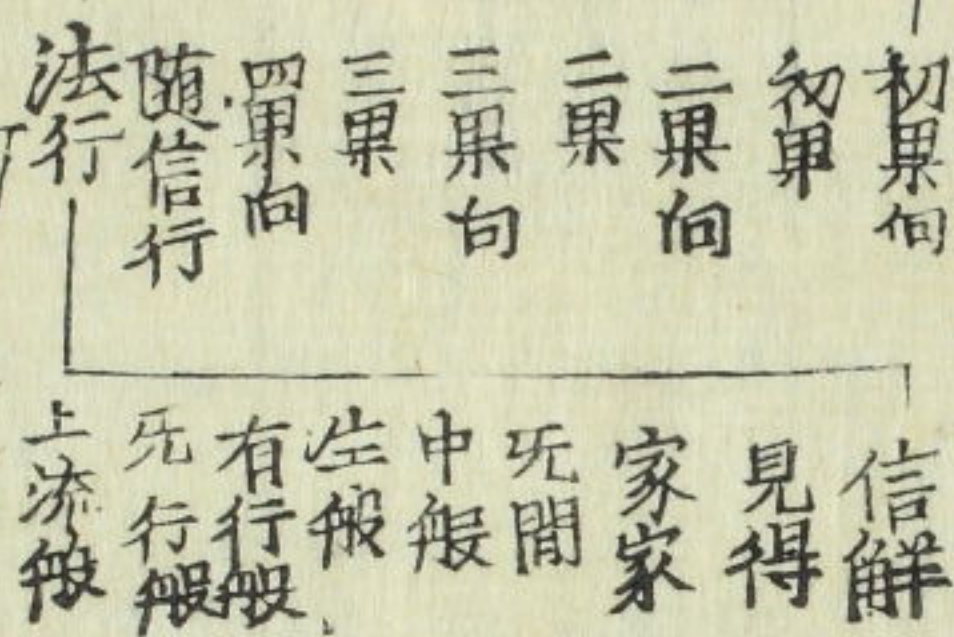 初果向
初果
二果向
二果
三果向
三果
四果向
随信行
法行
信解
見得
家家
无間
中般
生般
有行般
无行般
上流般